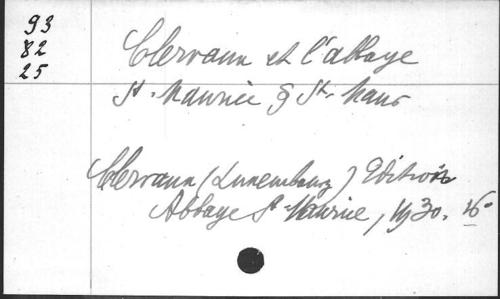 93
82
25
Clervaux et l'abbaye
St. Maurice & St. Maur
Clervaux (Luxembourg) Edition
Abbaye St Maurice, 1930. 16°